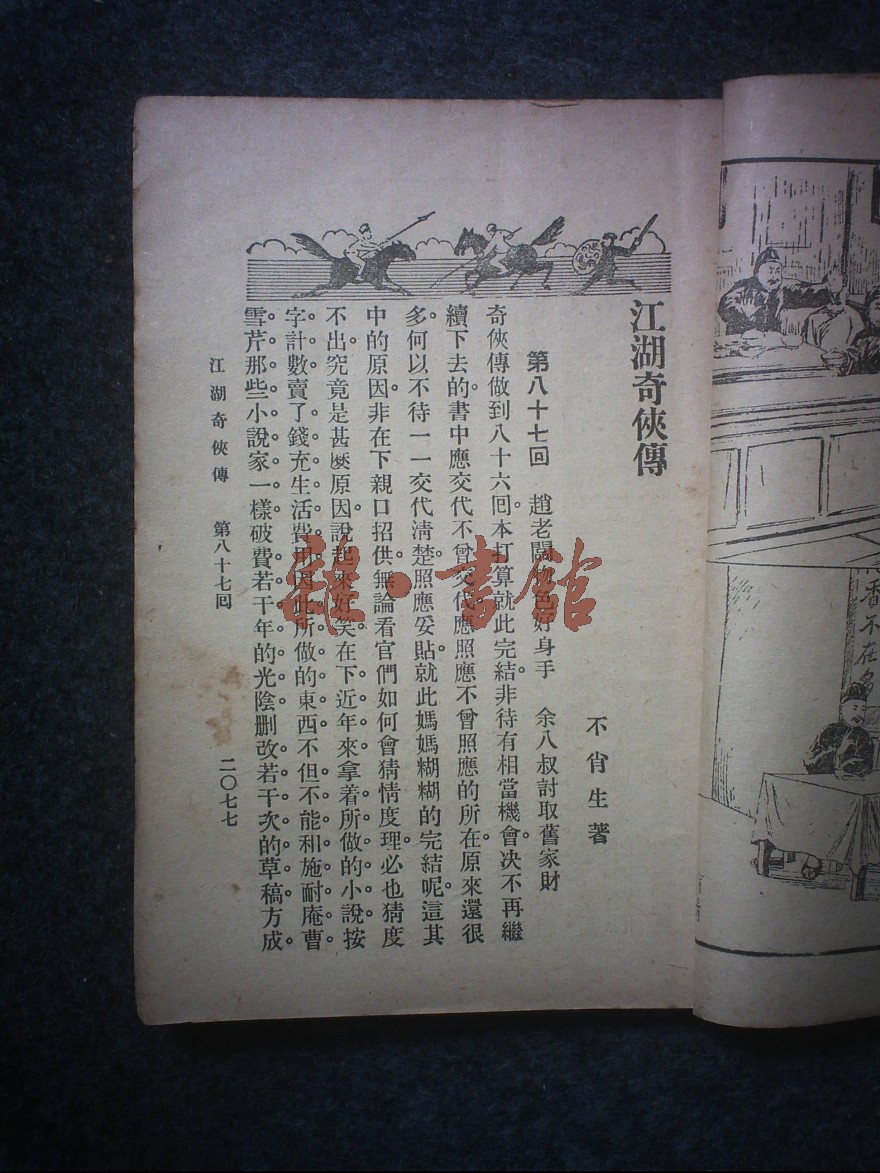 香不在
江湖奇俠傳
不肖生著
第八十七回 趙老闆物色好身手 余八叔討取舊家財
奇俠傳做到八十六回本打算就此完結非待有相當機會決不再繼
續下去的書中應交代不曾交代應照應不曾照應的所在原來還很
多何以不待一一交代清楚照應妥貼就此媽媽糊糊的完結呢這其
中的原因非在下親口招供無論看官們如何會猜情度理必也猜度
不出究竟是甚麽原因說起來好笑在下近年來拿着所做的小說按
字計數賣了錢充生活費用因此所做的東西不但不能和施耐庵曹
雪芹那些小說家一樣破費若干年的光陰刪改若干次的草稿方成
江湖奇俠傳 第八十七回 二〇七七
雜·書館